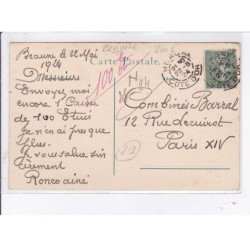 BEAUNE
Beaune le 22 Mai
1924
Carte Postale
Messieurs
Envoyez moi
encore 1 Caisse
de 100 Etuis
Je n'en ai presque
plus.
Je vous salue sin-
cèrement
Ronco ainé
Combinés Barral
12 Rue Lecuirot
Paris XIV